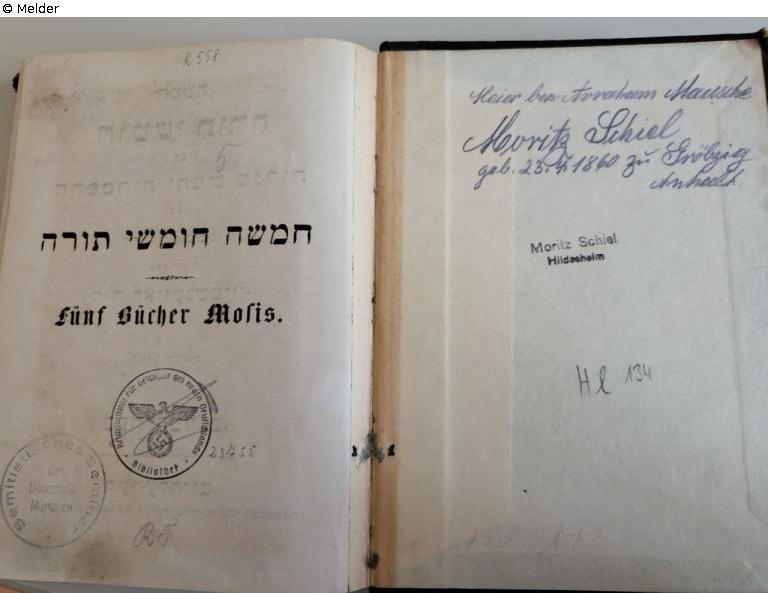 © Melder
חמשה חומשי תורה
Fünf Bücher Mosis.
Reichsinstitut für Geschichte des neuen Deutschlands
Bibliothek
23455
Semitistisches Seminar
der
Universität
München
Meier ben Avraham Mausche
Moritz Schiel
geb. 23. 4. 1860 zu Gröbzig
Anhalt.
Moritz Schiel
Hildesheim
Hl 134